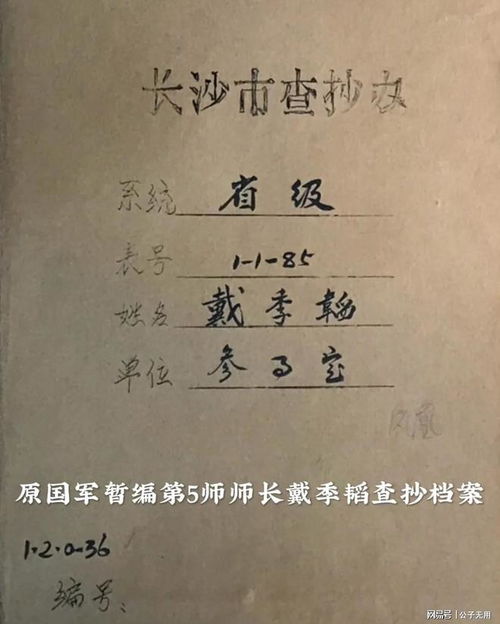 长沙市查抄办
系统 省级
表号 1-1-85
姓名 戴季韬
单位 参事室
凤凰
原国军暂编第5师师长戴季韬查抄档案
1·2·0-36
编号：
网易号 | 公子无用